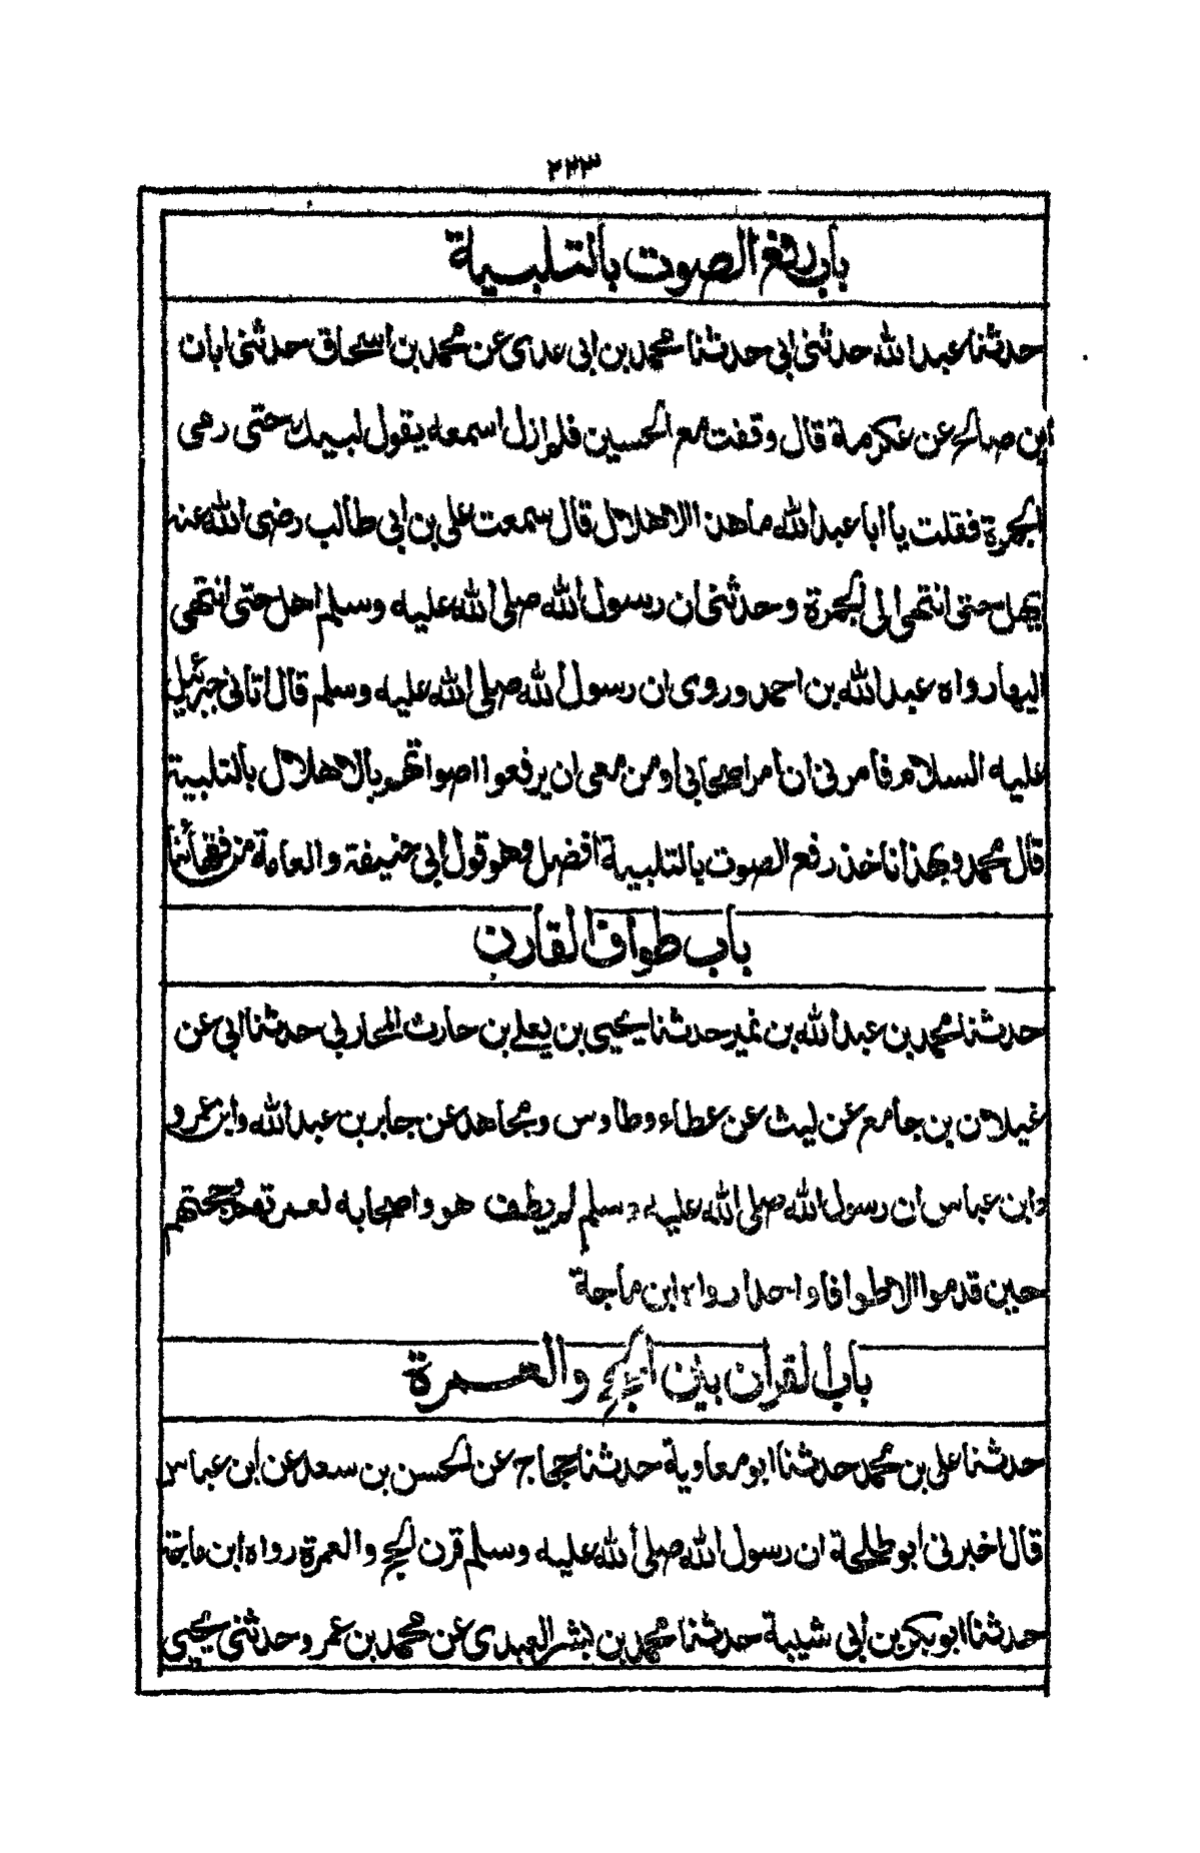 ٢٢٣
باب رفع الصوت بالتلبية
حدثنا عبد الله حدثنى ابى حدثنا محمد بن ابى عدى عن محمد بن اسحاق حدثنى ابان
ابن صالح عن عكرمة قال وقفت مع الحسين فلم ازل اسمعه يقول لبيك حتى رمى
الجمرة فقلت يا ابا عبد الله ما هذا الاهلال قال سمعت على بن ابى طالب رضى الله عنه
يهل حتى انتهى الى الجمرة وحدثنى ان رسول الله صلى الله عليه وسلم اهل حتى انتهى
اليها رواه عبد الله بن احمد وروى ان رسول الله صلى الله عليه وسلم قال اتانى جبرئيل
عليه السلام فامرنى ان امر اصحابى او من معى ان يرفعوا اصواتهم بالاهلال بالتلبية
قال محمد وبهذا ناخذ رفع الصوت بالتلبية افضل وهو قول ابى حنيفة والعامة من فقهائنا
باب طواف القارن
حدثنا محمد بن عبد الله بن نمير حدثنا يحيى بن يعلى بن حارث المحاربى حدثنا ابى عن
غيلان بن جامع عن ليث عن عطاء وطاوس ومجاهد عن جابر بن عبد الله وابن عمرو
وابن عباس ان رسول الله صلى الله عليه وسلم لم يطف هو واصحابه لعمرتهم وحجتهم
حين قدموا الا طوافا واحدا رواه ابن ماجة
باب القران بين الحج والعمرة
حدثنا على بن محمد حدثنا ابو معاوية حدثنا حجاج عن الحسن بن سعد عن ابن عباس
قال اخبرنى ابو طلحة ان رسول الله صلى الله عليه وسلم قرن الحج والعمرة رواه ابن ماجة
حدثنا ابو بكر بن ابى شيبة حدثنا محمد بن بشر العبدى عن محمد بن عمرو حدثنى يحيى